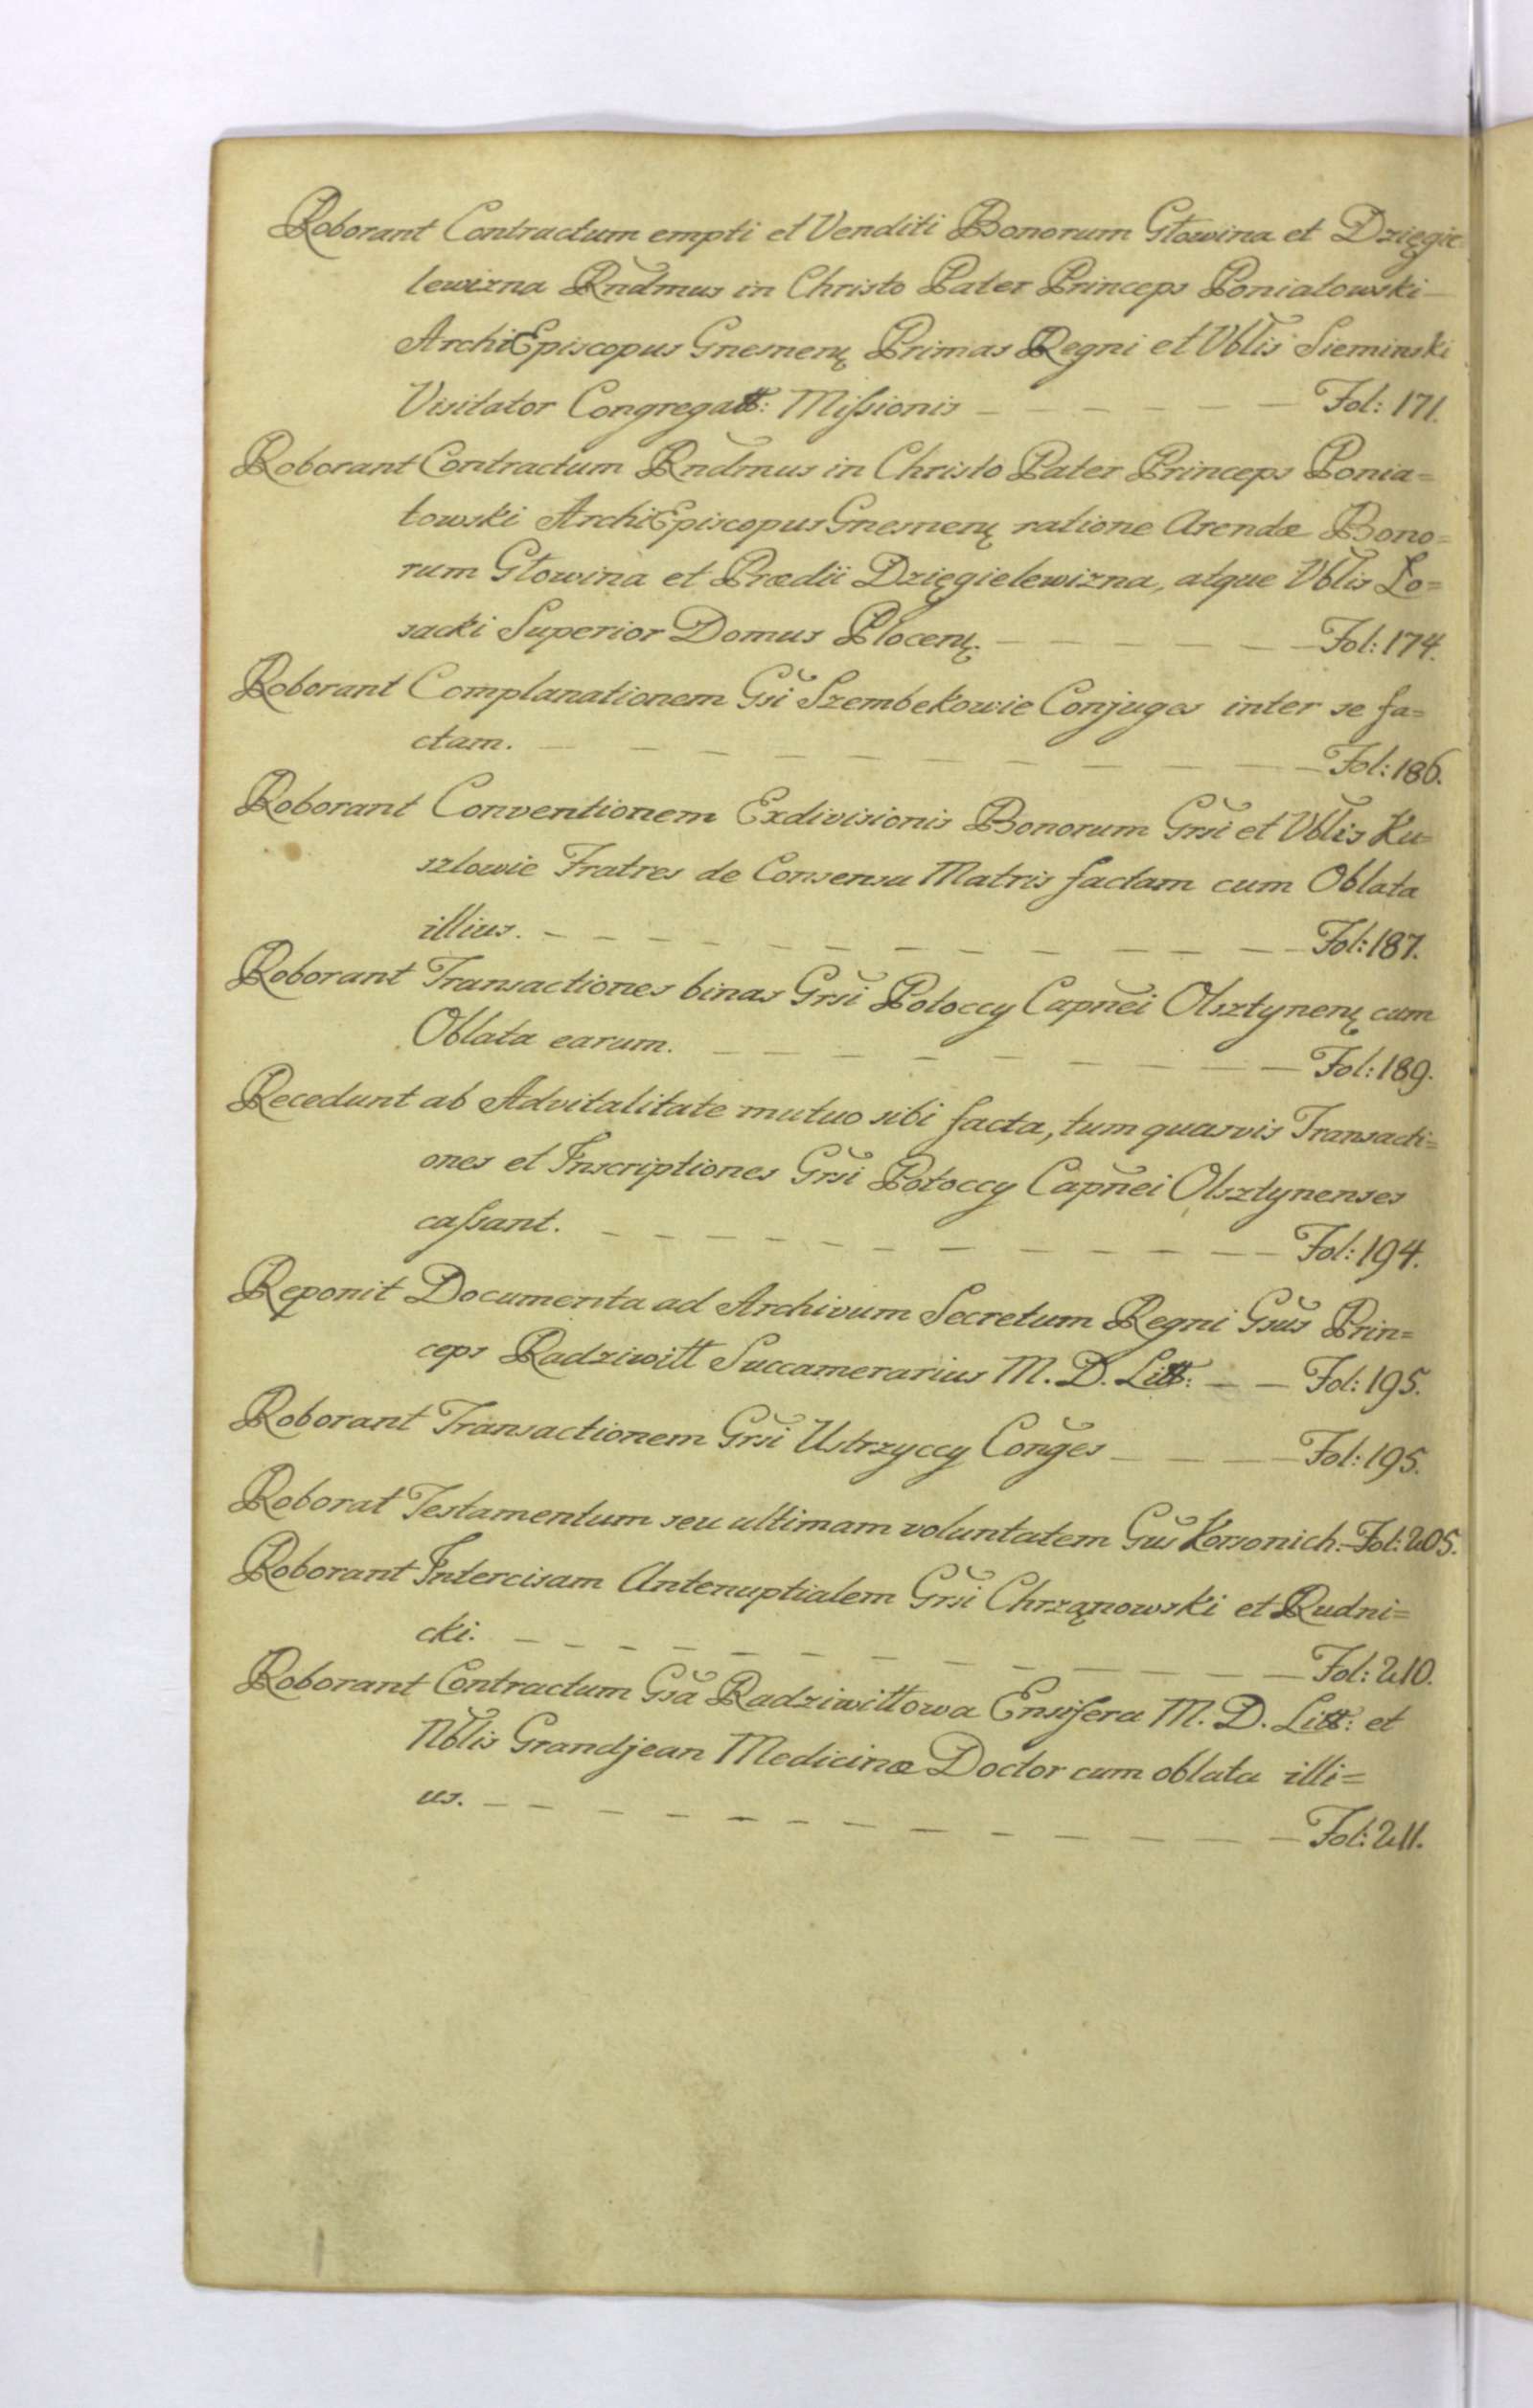 Roborant Contractum empti et Venditi Bonorum Głowina et Dzięgie=
lewizna Rńdmus in Christo Pater Princeps Poniatowski
ArchiEpiscopus Gnesnen: Primas Regni et Vblis Sieminski
Visitator Congregatt: Mißionis Fol: 171.
Roborant Contractum Rńdmus in Christo Pater Princeps Ponia=
towski ArchiEpiscopus Gnesnen: ratione Arendæ Bono=
rum Głowina et Prædii Dzięgielewizna, atque Vblis Lo=
sacki Superior Domus Plocen: Fol: 174.
Roborant Complanationem Gsi Szembekowie Conjuges inter se fa=
ctam. Fol: 186.
Roborant Conventionem Exdivisionis Bonorum Grsi et Vblis Ku=
szlowie Fratres de Consensu Matris factam cum Oblata
illius. Fol: 187.
Roborant Transactiones binas Grsi Potoccy Capnei Olsztynen: cum
Oblata earum. Fol: 189.
Recedunt ab Advitalitate mutuo sibi facta, tum quasvis Transacti=
ones et Inscriptiones Grsi Potoccy Capnei Olsztynenses
caßant. Fol: 194.
Reponit Documenta ad Archivum Secretum Regni Gsus Prin=
ceps Radziwiłł Succamerarius M. D. Litt: Fol: 195.
Roborant Transactionem Grsi Ustrzyccy Conges Fol: 195.
Roborat Testamentum seu ultimam voluntatem Gus Korsonich. Fol: 205.
Roborant Intercisam Antenuptialem Grsi Chrząnowski et Rudni=
cki. Fol: 210.
Roborant Contractum Gsa Radziwiłłowa Ensifera M. D. Litt: et
Nblis Grandjean Medicinæ Doctor cum oblata illi=
us. Fol: 211.